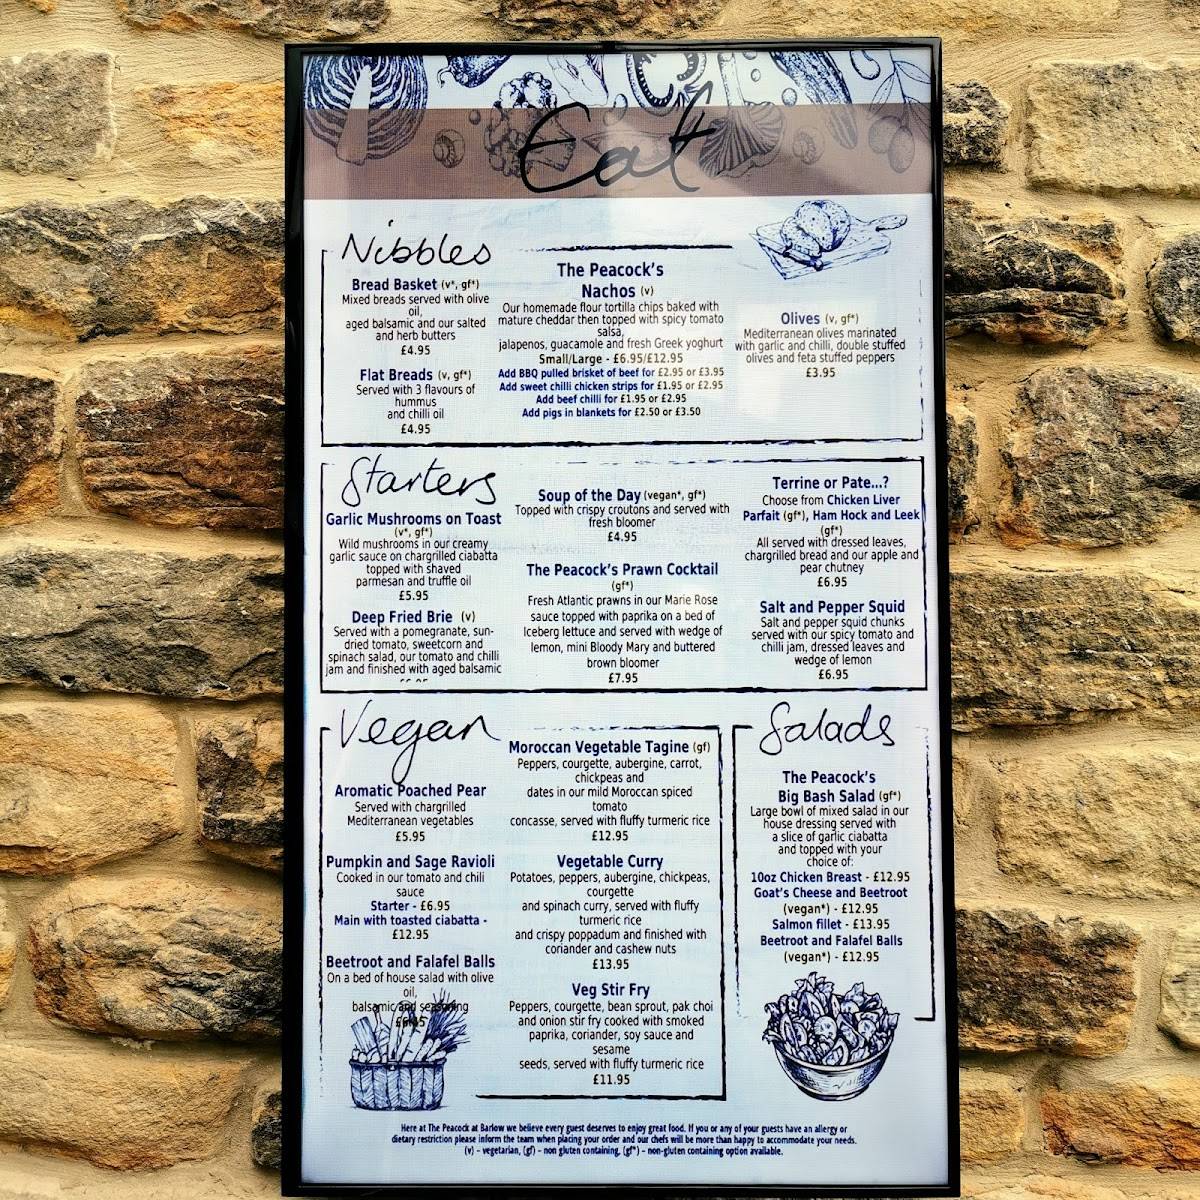 Eat
Nibbles
Bread Basket (v*, gf*)
Mixed breads served with olive
oil,
aged balsamic and our salted
and herb butters
£4.95
Flat Breads (v, gf*)
Served with 3 flavours of
hummus
and chilli oil
£4.95
The Peacock's
Nachos (v)
Our homemade flour tortilla chips baked with
mature cheddar then topped with spicy tomato
salsa,
jalapenos, guacamole and fresh Greek yoghurt
Small/Large - £6.95/£12.95
Add BBQ pulled brisket of beef for £2.95 or £3.95
Add sweet chilli chicken strips for £1.95 or £2.95
Add beef chilli for £1.95 or £2.95
Add pigs in blankets for £2.50 or £3.50
Olives (v, gf*)
Mediterranean olives marinated
with garlic and chilli, double stuffed
olives and feta stuffed peppers
£3.95
Starters
Garlic Mushrooms on Toast
(v*, gf*)
Wild mushrooms in our creamy
garlic sauce on chargrilled ciabatta
topped with shaved
parmesan and truffle oil
£5.95
Deep Fried Brie (v)
Served with a pomegranate, sun-
dried tomato, sweetcorn and
spinach salad, our tomato and chilli
jam and finished with aged balsamic
Soup of the Day (vegan*, gf*)
Topped with crispy croutons and served with
fresh bloomer
£4.95
The Peacock's Prawn Cocktail
(gf*)
Fresh Atlantic prawns in our Marie Rose
sauce topped with paprika on a bed of
Iceberg lettuce and served with wedge of
lemon, mini Bloody Mary and buttered
brown bloomer
£7.95
Terrine or Pate...?
Choose from Chicken Liver
Parfait (gf*), Ham Hock and Leek
(gf*)
All served with dressed leaves,
chargrilled bread and our apple and
pear chutney
£6.95
Salt and Pepper Squid
Salt and pepper squid chunks
served with our spicy tomato and
chilli jam, dressed leaves and
wedge of lemon
£6.95
Vegan
Aromatic Poached Pear
Served with chargrilled
Mediterranean vegetables
£5.95
Pumpkin and Sage Ravioli
Cooked in our tomato and chili
sauce
Starter - £6.95
Main with toasted ciabatta -
£12.95
Beetroot and Falafel Balls
On a bed of house salad with olive
oil,
balsamic and seasoning
Moroccan Vegetable Tagine (gf)
Peppers, courgette, aubergine, carrot,
chickpeas and
dates in our mild Moroccan spiced
tomato
concasse, served with fluffy turmeric rice
£12.95
Vegetable Curry
Potatoes, peppers, aubergine, chickpeas,
courgette
and spinach curry, served with fluffy
turmeric rice
and crispy poppadum and finished with
coriander and cashew nuts
£13.95
Veg Stir Fry
Peppers, courgette, bean sprout, pak choi
and onion stir fry cooked with smoked
paprika, coriander, soy sauce and
sesame
seeds, served with fluffy turmeric rice
£11.95
Salads
The Peacock's
Big Bash Salad (gf*)
Large bowl of mixed salad in our
house dressing served with
a slice of garlic ciabatta
and topped with your
choice of:
10oz Chicken Breast - £12.95
Goat's Cheese and Beetroot
(vegan*) - £12.95
Salmon fillet - £13.95
Beetroot and Falafel Balls
(vegan*) - £12.95
Here at The Peacock at Barlow we believe every guest deserves to enjoy great food. If you or any of your guests have an allergy or
dietary restriction please inform the team when placing your order and our chefs will be more than happy to accommodate your needs.
(v) - vegetarian, (gf) - non gluten containing, (gf*) - non-gluten containing option available.